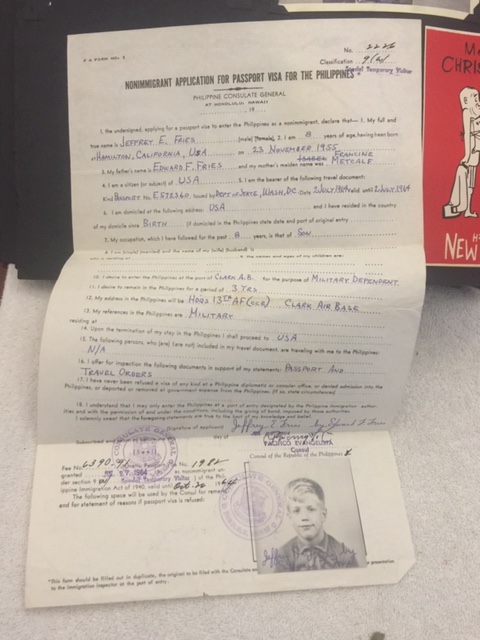 F A FORM NO. 2
No. 2226
Classification 9(a)
Special Temporary Visitor
NONIMMIGRANT APPLICATION FOR PASSPORT VISA FOR THE PHILIPPINES
PHILIPPINE CONSULATE GENERAL
AT HONOLULU, HAWAII
, 19
I, the undersigned, applying for a passport visa to enter the Philippines as a nonimmigrant, declare that— 1. My full and
true name is JEFFREY E. FRIES (male) (female), 2. I am 8 years of age, having been born
at HAMILTON, CALIFORNIA, USA on 23 NOVEMBER 1955
3. My father's name is EDWARD F. FRIES and my mother's maiden name was FRANCINE METCALF
4. I am a citizen (or subject) of USA 5. I am the bearer of the following travel document:
Kind PASSPORT No. E572360 issued by DEPT OF STATE, WASH, DC. Date 2 JULY 1964 Valid until 2 JULY 1969
6. I am domiciled at the following address USA and I have resided in the country
of my domicile since BIRTH (if domiciled in the Philippines state date and port of original entry
7. My occupation, which I have followed for the past 8 years, is that of SON
8. I am (single) (married) and the name of my (wife) (husband) is
9. the names and ages of my children are:
10. I desire to enter the Philippines at the port of CLARK A.B. for the purpose of MILITARY DEPENDENT
11. I desire to remain in the Philippines for a period of 3 YRS
12. My address in the Philippines will be HDQS 13TH AF (CCR) CLARK AIR BASE
13. My references in the Philippines are MILITARY
residing at
14. Upon the termination of my stay in the Philippines I shall proceed to USA
15. The following persons, who (are) (are not) included in my travel document, are traveling with me to the Philippines:
N/A
16. I offer for inspection the following documents in support of my statements: PASSPORT AND
TRAVEL ORDERS
17. I have never been refused a visa of any kind at a Philippine diplomatic or consular office, or denied admission into the
Philippines, or deported or removed at government expense from the Philippines. (If so, state circumstances)
18. I understand that I may only enter the Philippines at a port of entry designated by the Philippine immigration
and with the permission of and under the conditions, including the giving of bond, imposed by those authorities.
I solemnly swear that the foregoing statements are true to the best of my knowledge and belief.
(Signature of applicant) Jeffrey E. Fries by Edward F. Fries
Subscribed and day of
PACIFICO EVANGELISTA
Consul
Consul of the Republic of the Philippines
Fee No. 6390 Passport Visa No. 1982
granted 1964 as nonimmigrant
der section 9 Special Temporary Visitor of the Phil-
ippine Immigration Act of 1940, valid until Oct. 1964
The following space will be used by the Consul for remarks
and for statement of reasons if passport visa is refused:
CONSULATE GENERAL
Jeffrey by
*This form should be filled out in duplicate, the original to be filed with the Consulate and presentation
to the immigration inspector at the port of entry.
CHRIS
NEW